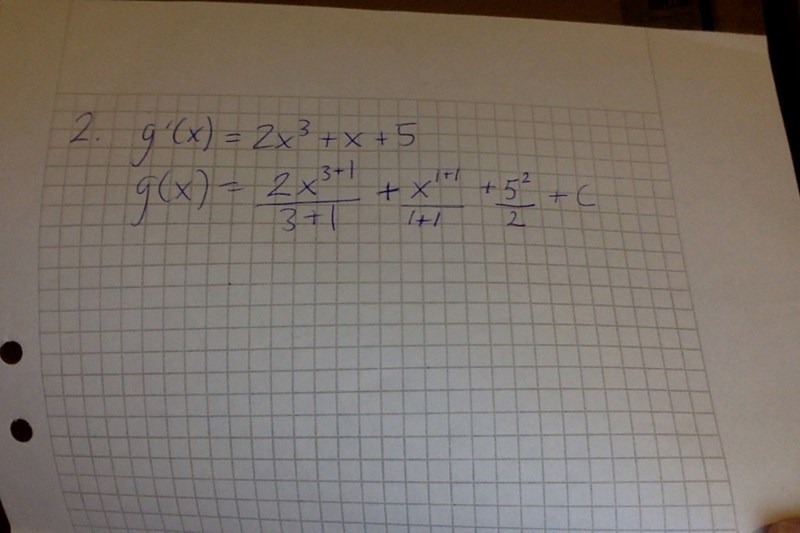 2. g'(x) = 2x³ + x + 5
g(x) = 2x³⁺¹/3+1 + x¹⁺¹/1+1 + 5²/2 + C